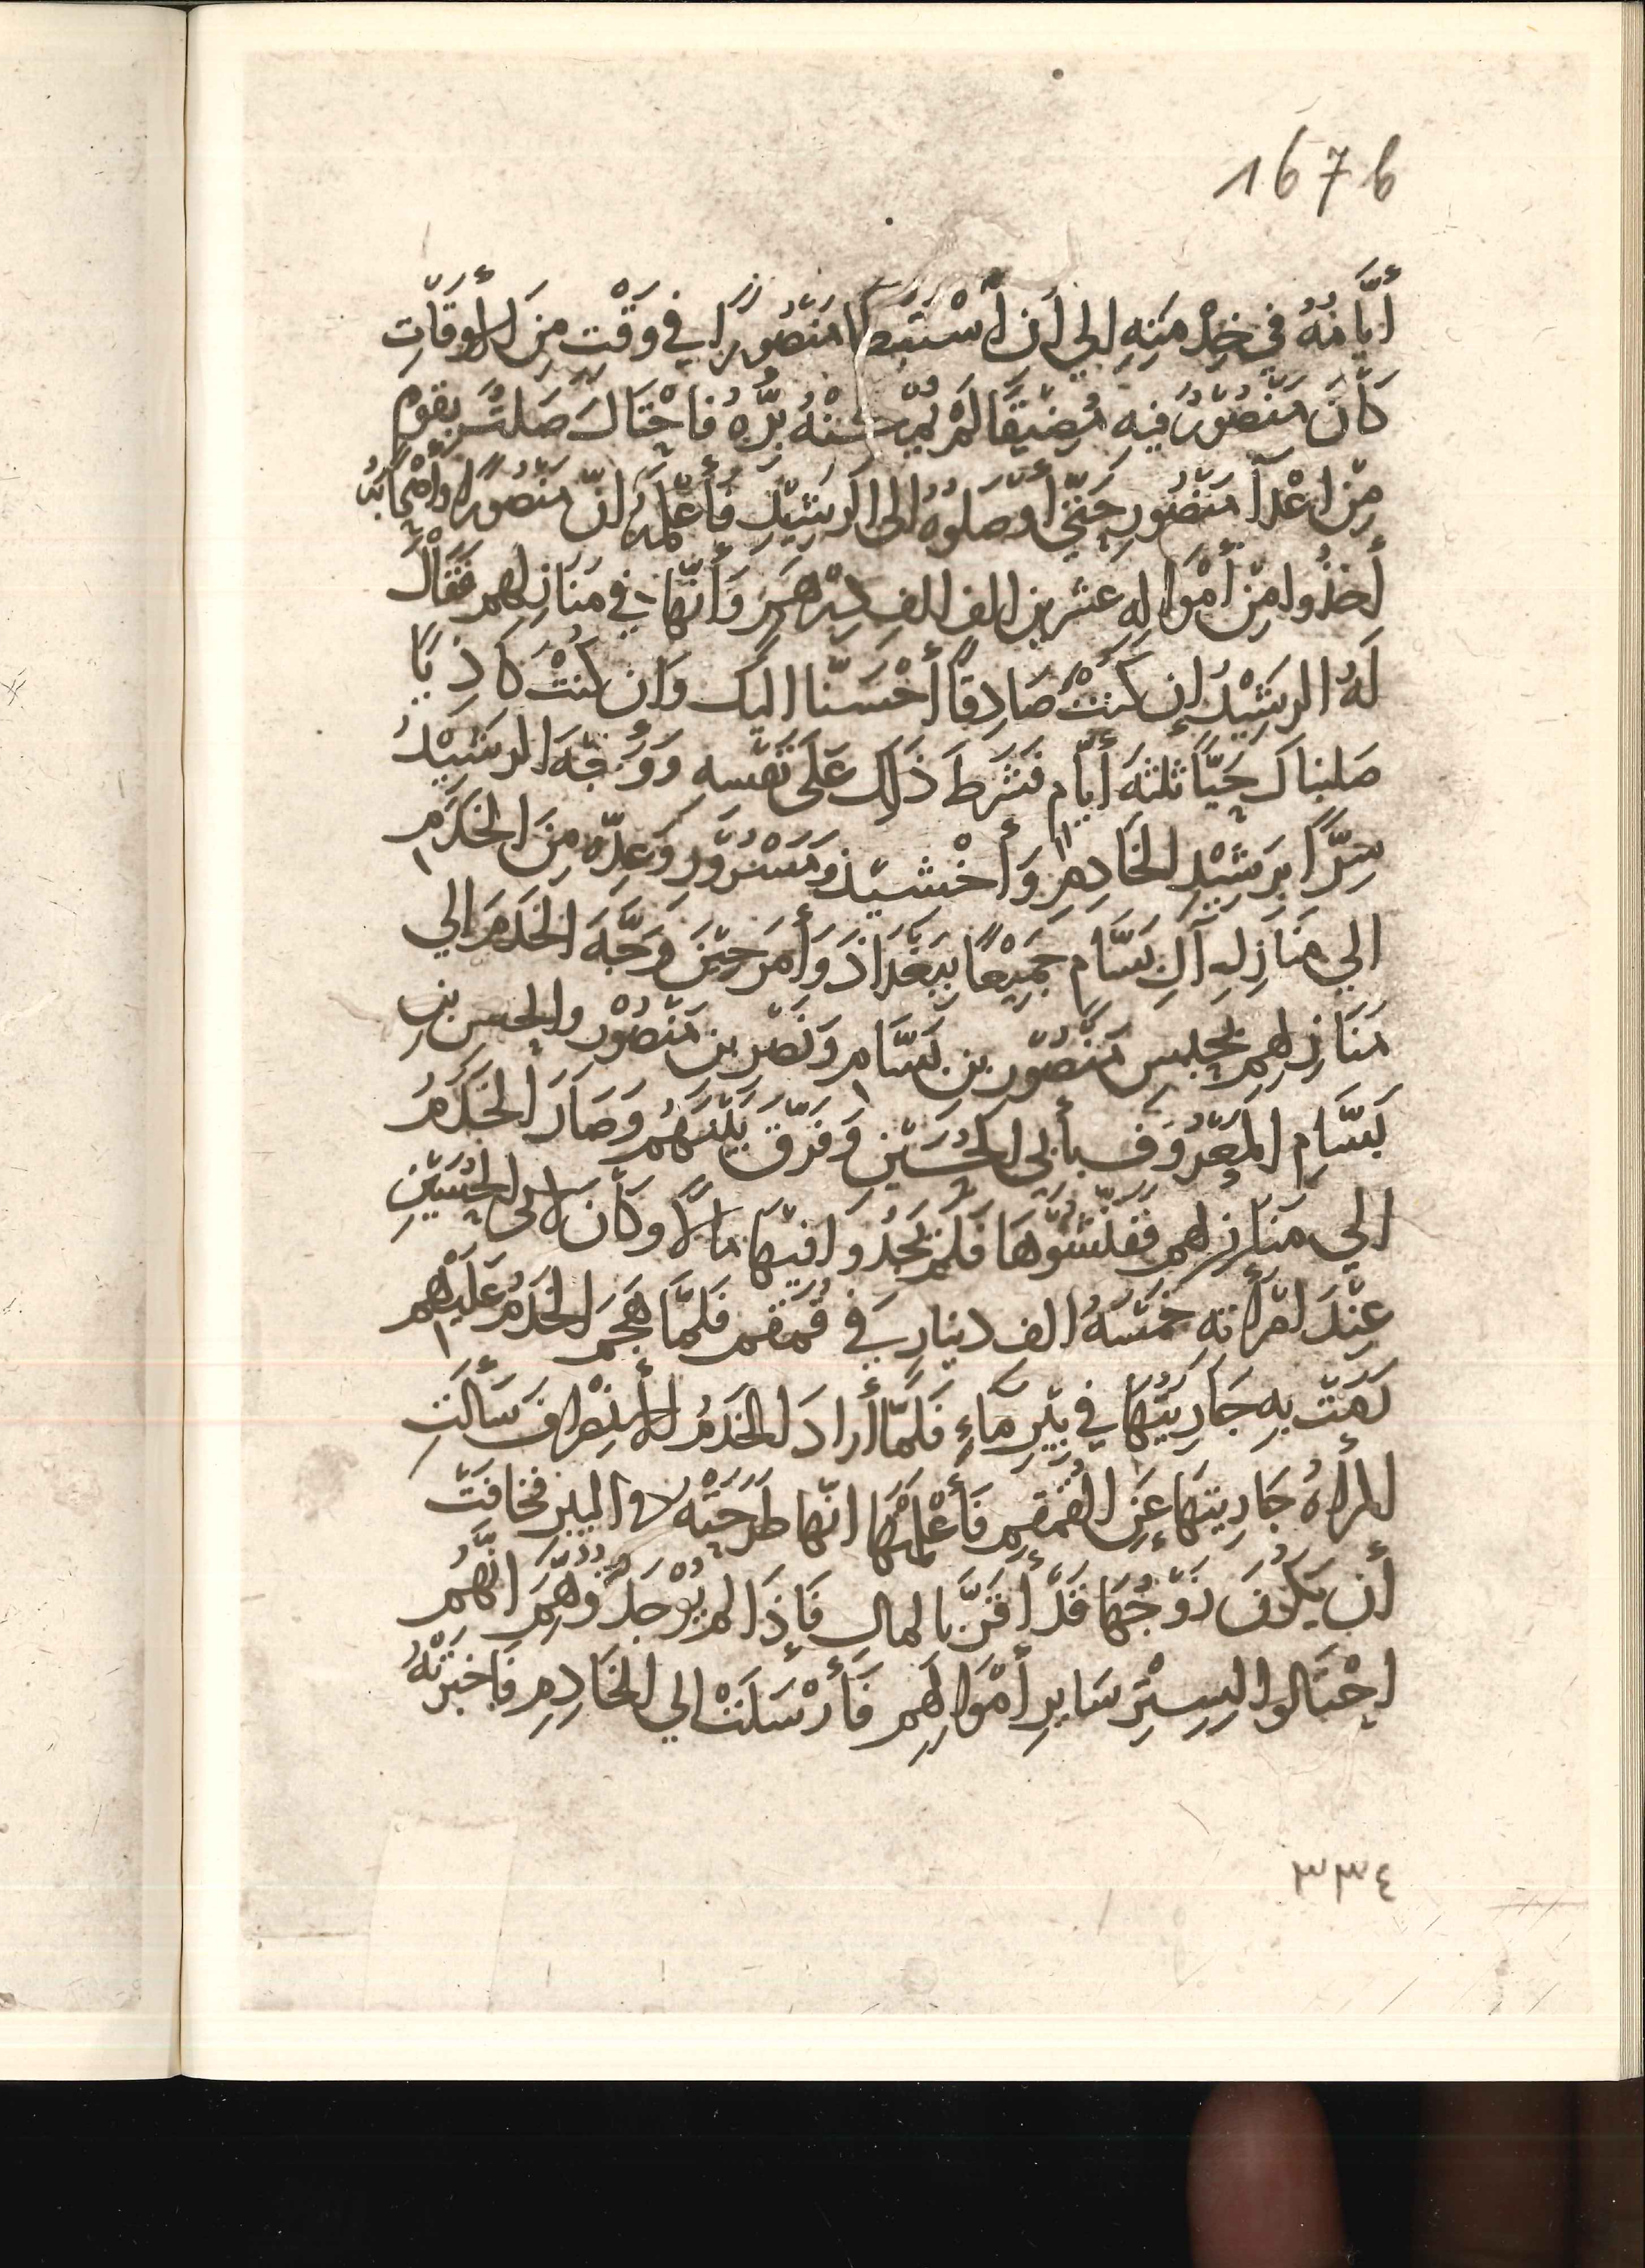 167b
أَيَّامُهُ في خِدْمَتِهِ إلي أن أَسْتَبطَا مَنْصُورًا في وَقْتٍ مِنَ الأَوقَاتِ
كَانَ مَنْصُوْرٌ فيه مُضَيّقًا لَمْ يُمْكنْهُ بِرُّهُ فَاحْتَالَ صَلْتٌ بِقَومٍ
مِنْ اعْدآ مَنْصُورٍ حَتّي أَوْصَلوهُ الى الرَشِيْدِ فَأَعْلَمَهُ انّ مَنْصُورًا وَأصْحَابَهُ
أَخَذُوا مِنْ أَمْوَالِهِ عشرين الف الفِ دِرْهَمٍ وَأَنّهَا في مَنَازِلهم فَقَالَ
لَهُ الرَشِيْدُ إن كُنْتَ صَادِقًا أَحْسَنّا اليك وَان كُنْتَ كَاذِبًا
صَلبناكَ حَيًّا ثلثةَ أَيّام فَشَرَطَ ذَلِكَ عَلَى نَفْسه وَوَجّهَ الرَشِيْدُ
سِرًّا بِرَشِيْدٍ الخَادِمِ وَأَخْشيْذ وَمَسْرُوْرٍ وَعِدّةٍ مِنَ الخَدَمِ
الي مَنَازِلِ آلِ بَسَّامٍ جَمِيْعًا بِبَغْدَاذَ وَأَمَرَ حِيْنَ وَجَّهَ الخَدَمَ الي
مَنَازِلِهِم بِحَبْسِ مَنْصُوْرِ بنِ بَسَّامٍ وَنَصْرِ بن مَنْصُوْرٍ والحسن بنِ
بَسَّامٍ المَعْرُوْفِ بأبى الحُسَيْنِ وَفَرّقَ بَيْنَهُم وَصَارَ الخَدَمُ
الي مَنَازِلهم فَفَتّشُوْهَا فَلَمْ يَجِدُوا فيْهَا مَالاً وكَانَ لابى الحُسَيْنِ
عِنْدَ امْرَأتِهِ خَمْسَةُ الف دينارٍ في قُمقمٍ فَلَمّا هَجَمَ الخَدَمُ عَلَيْهِم
رَمَتْ بِهِ جَارِيَتُهَا في بِيْرِ مَاءٍ فَلَمّا أَرادَ الخَدَمُ الأنْصِرافَ سَأَلَتِ
المرأَةُ جَارِيتَهَا عَنِ القُمْقمِ فَأَعْلَمَتْهَا انّها طَرَحَتْهُ في البير فخافَتْ
أَن يَكُونَ زَوْجُهَا قَدْ أَقَرَّ بالمالِ فَإذَا لم يُوْجَدْ تُوُهِّمَ انَّهُم
احْتَالوا لِسِتْرِ سَايرِ أَمْوَالِهِم فَأَرْسَلَتْ الي الخَادِمِ فَاخبَرَتْهُ
٣٣٤